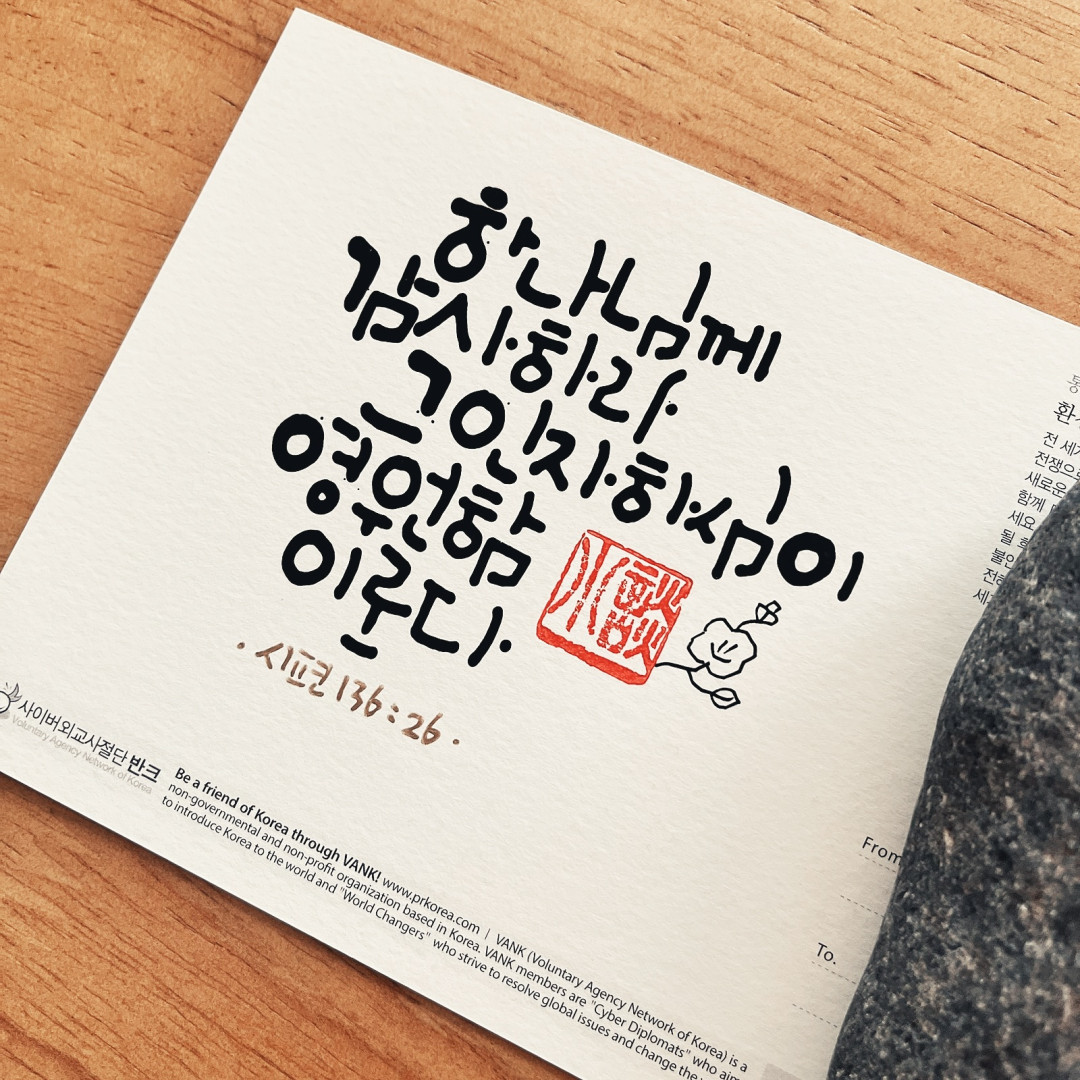 하나님께
감사하라
그 인자하심이
영원함
이로다
· 시편 136:26 ·
사이버외교사절단 반크
Voluntary Agency Network of Korea
Be a friend of Korea through VANK! www.prkorea.com | VANK (Voluntary Agency Network of Korea) is a
non-governmental and non-profit organization based in Korea. VANK members are "Cyber Diplomats" who aim
to introduce Korea to the world and "World Changers" who strive to resolve global issues and change the
전
전쟁으로
새로운
함께
세요
From
To.